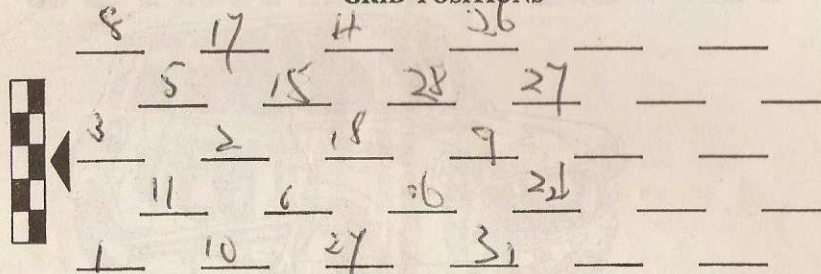 GRID POSITIONS
8 17 26
5 15 28 27
3 2 18 9
11 6
1 10 27 31